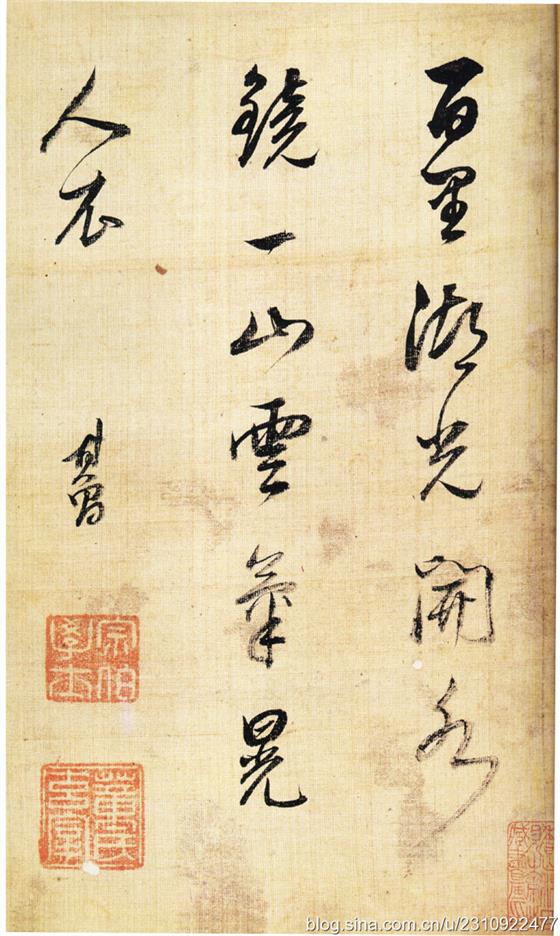 百里湖光開水
鏡一山雲氣晃
人衣
其昌
宗伯學士
董氏玄宰
blog.sina.com.cn/u/2310922477